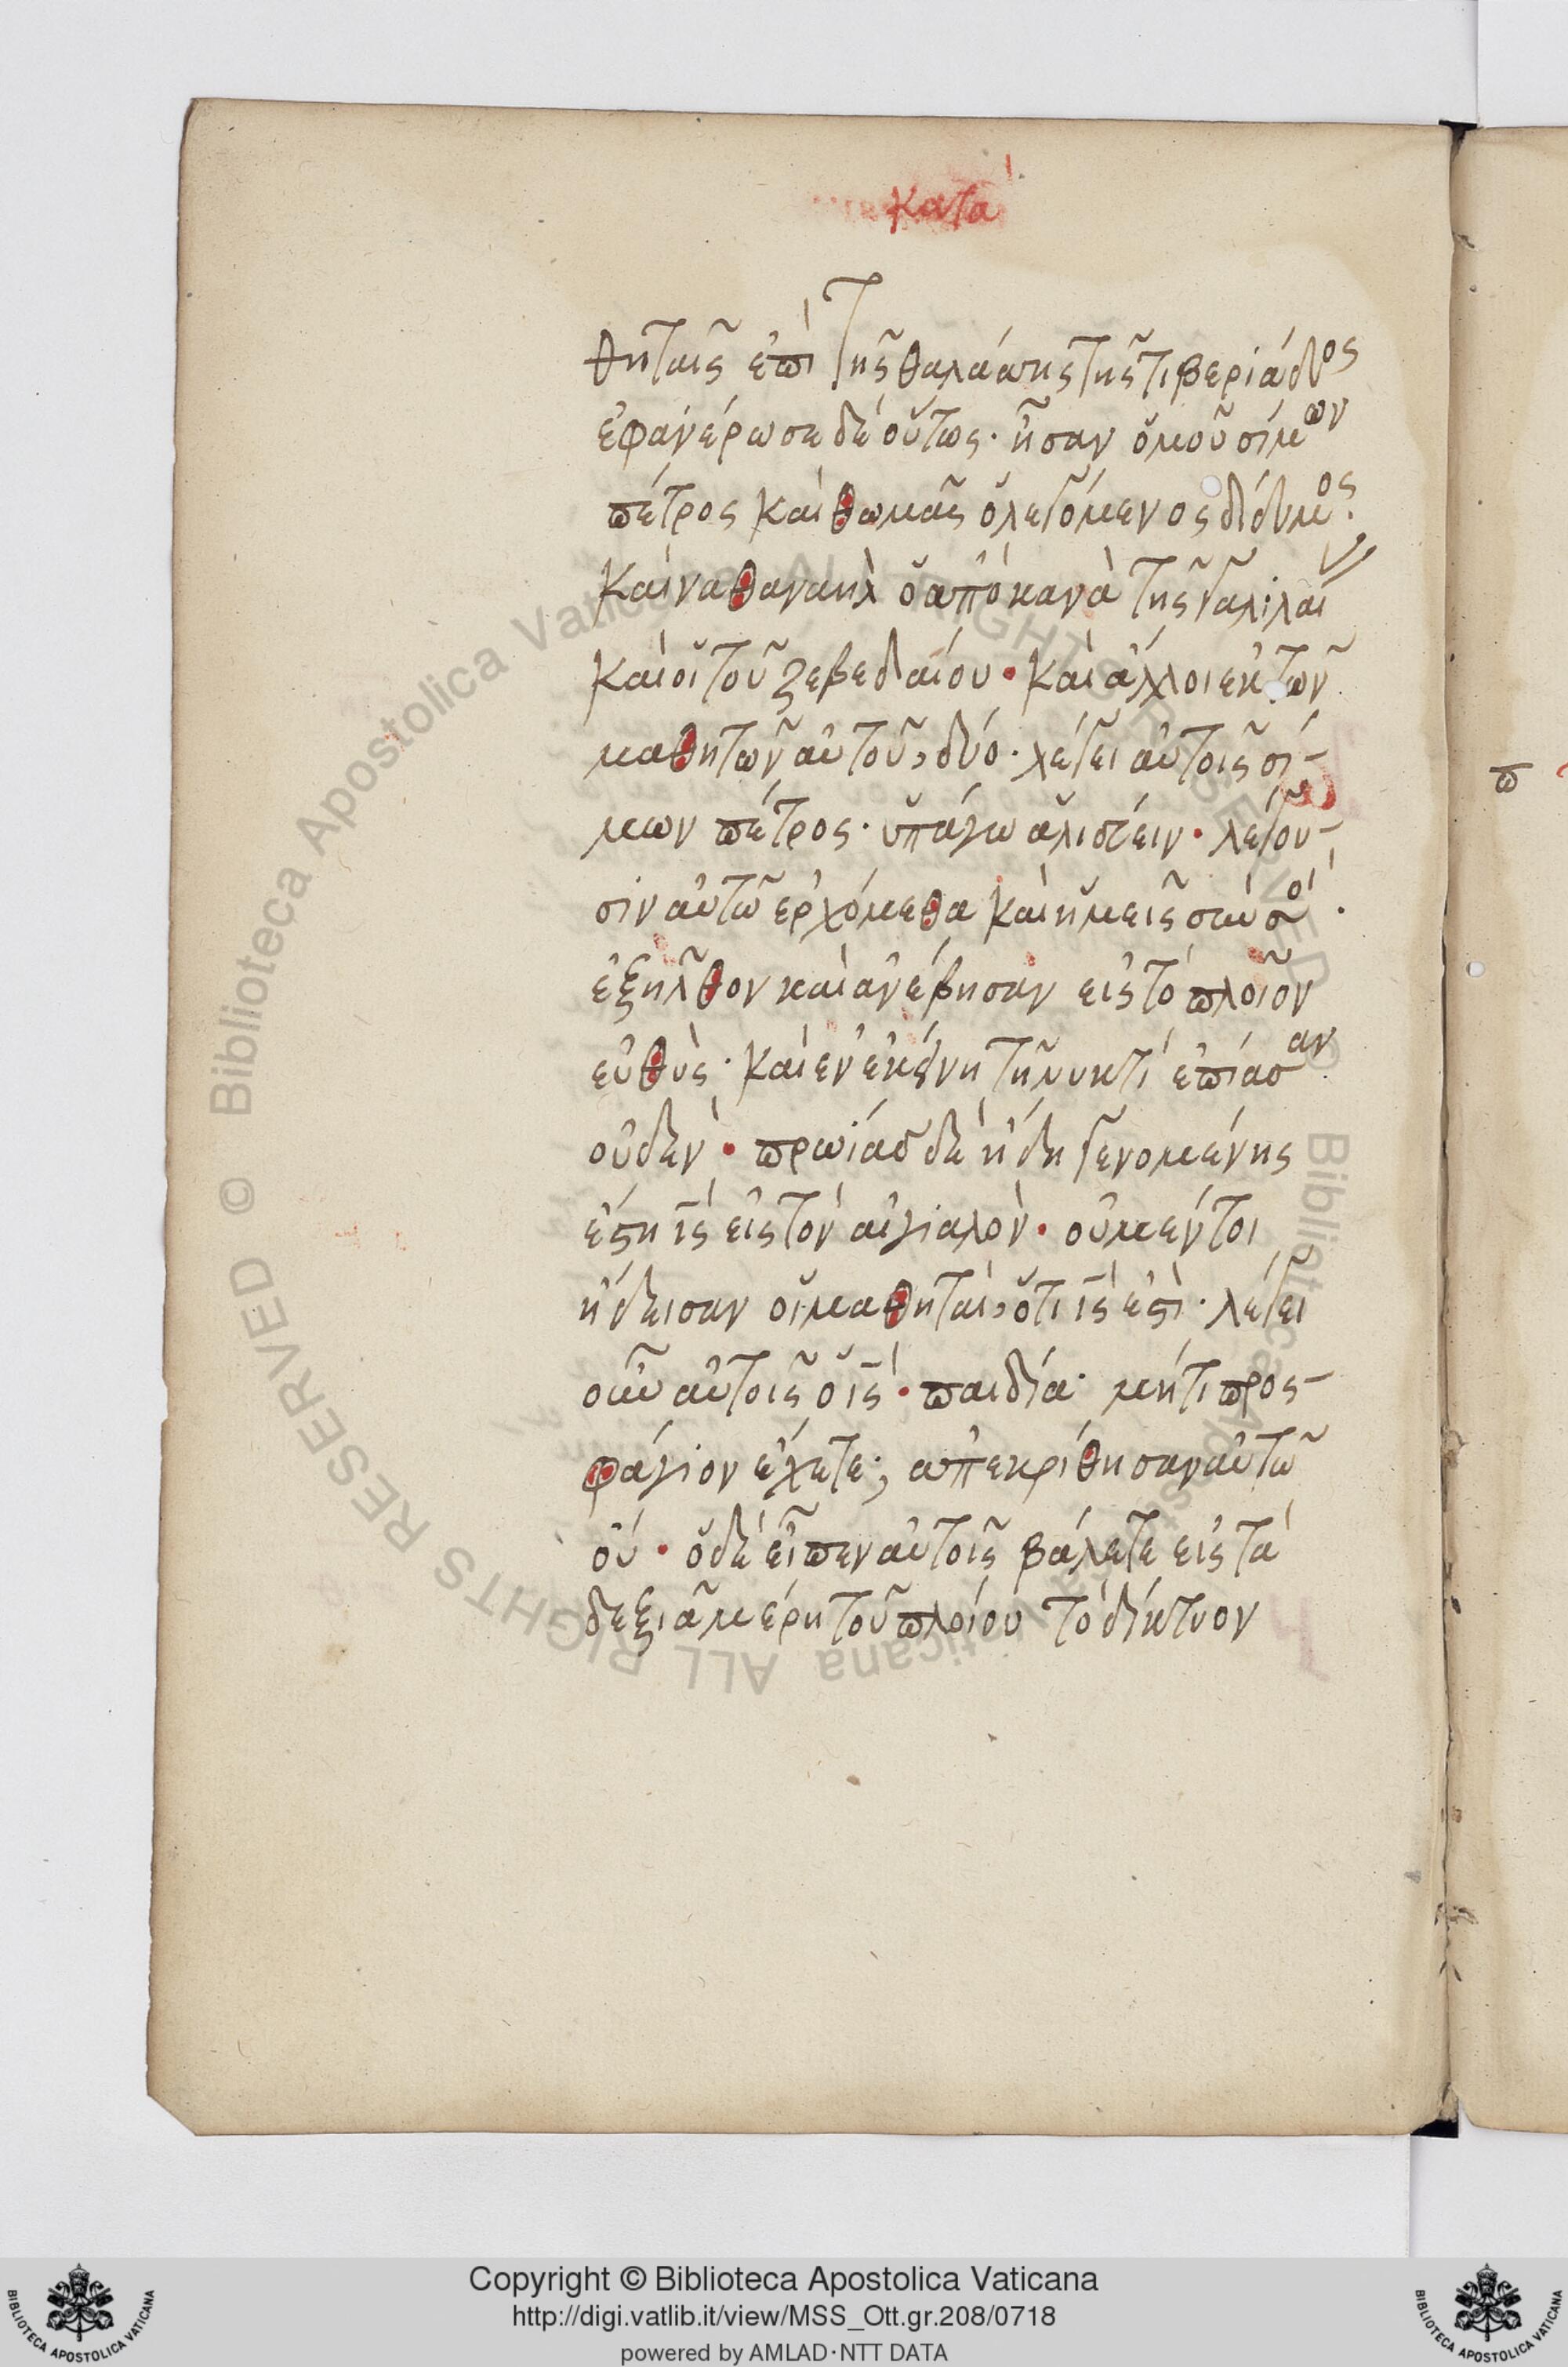 κατὰ
θηταῖς ἐπὶ τῆς θαλάσσης τῆς τιβεριάδος
ἐφανέρωσε δὲ οὕτως· ἦσαν ὁμοῦ σίμων
πέτρος καὶ θωμᾶς ὁ λεγόμενος δίδυμος·
καὶ ναθαναὴλ ὁ ἀπὸ κανὰ τῆς γαλιλαί
καὶ οἱ τοῦ ζεβεδαίου· καὶ ἄλλοι ἐκ τῶν
μαθητῶν αὐτοῦ, δύο· λέγει αὐτοῖς σί-
μων πέτρος· ὑπάγω ἁλιεύειν· λέγου-
σιν αὐτῶ ἐρχόμεθα καὶ ἡμεῖς σὺν σοί·
ἐξῆλθον καὶ ἀνέβησαν εἰς τὸ πλοῖον
εὐθὺς· καὶ ἐν ἐκείνη τῆ νυκτὶ ἐπίασαν
οὐδὲν· πρωΐας δὲ ἤδη γενομένης
ἔστη ις εἰς τὸν αἰγιαλὸν· οὐ μέντοι
ἤδεισαν οἱ μαθηταὶ, ὅτι ις ἐστὶ· λέγει
οὖν αὐτοῖς ὁ ις· παιδία· μήτι προσ-
φάγιον ἔχετε; ἀπεκρίθησαν αὐτῶ
οὔ· ὁ δὲ εἶπεν αὐτοῖς βάλετε εἰς τὰ
δεξιᾶ μέρη τοῦ πλοίου τὸ δίκτυον
π
Copyright © Biblioteca Apostolica Vaticana
http://digi.vatlib.it/view/MSS_Ott.gr.208/0718
powered by AMLAD·NTT DATA
BIBLIOTECA APOSTOLICA VATICANA
BIBLIOTECA APOSTOLICA VATICANA
© Biblioteca Apostolica Vaticana ALL RIGHTS RESERVED
© Biblioteca Apostolica Vaticana ALL RIGHTS RESERVED